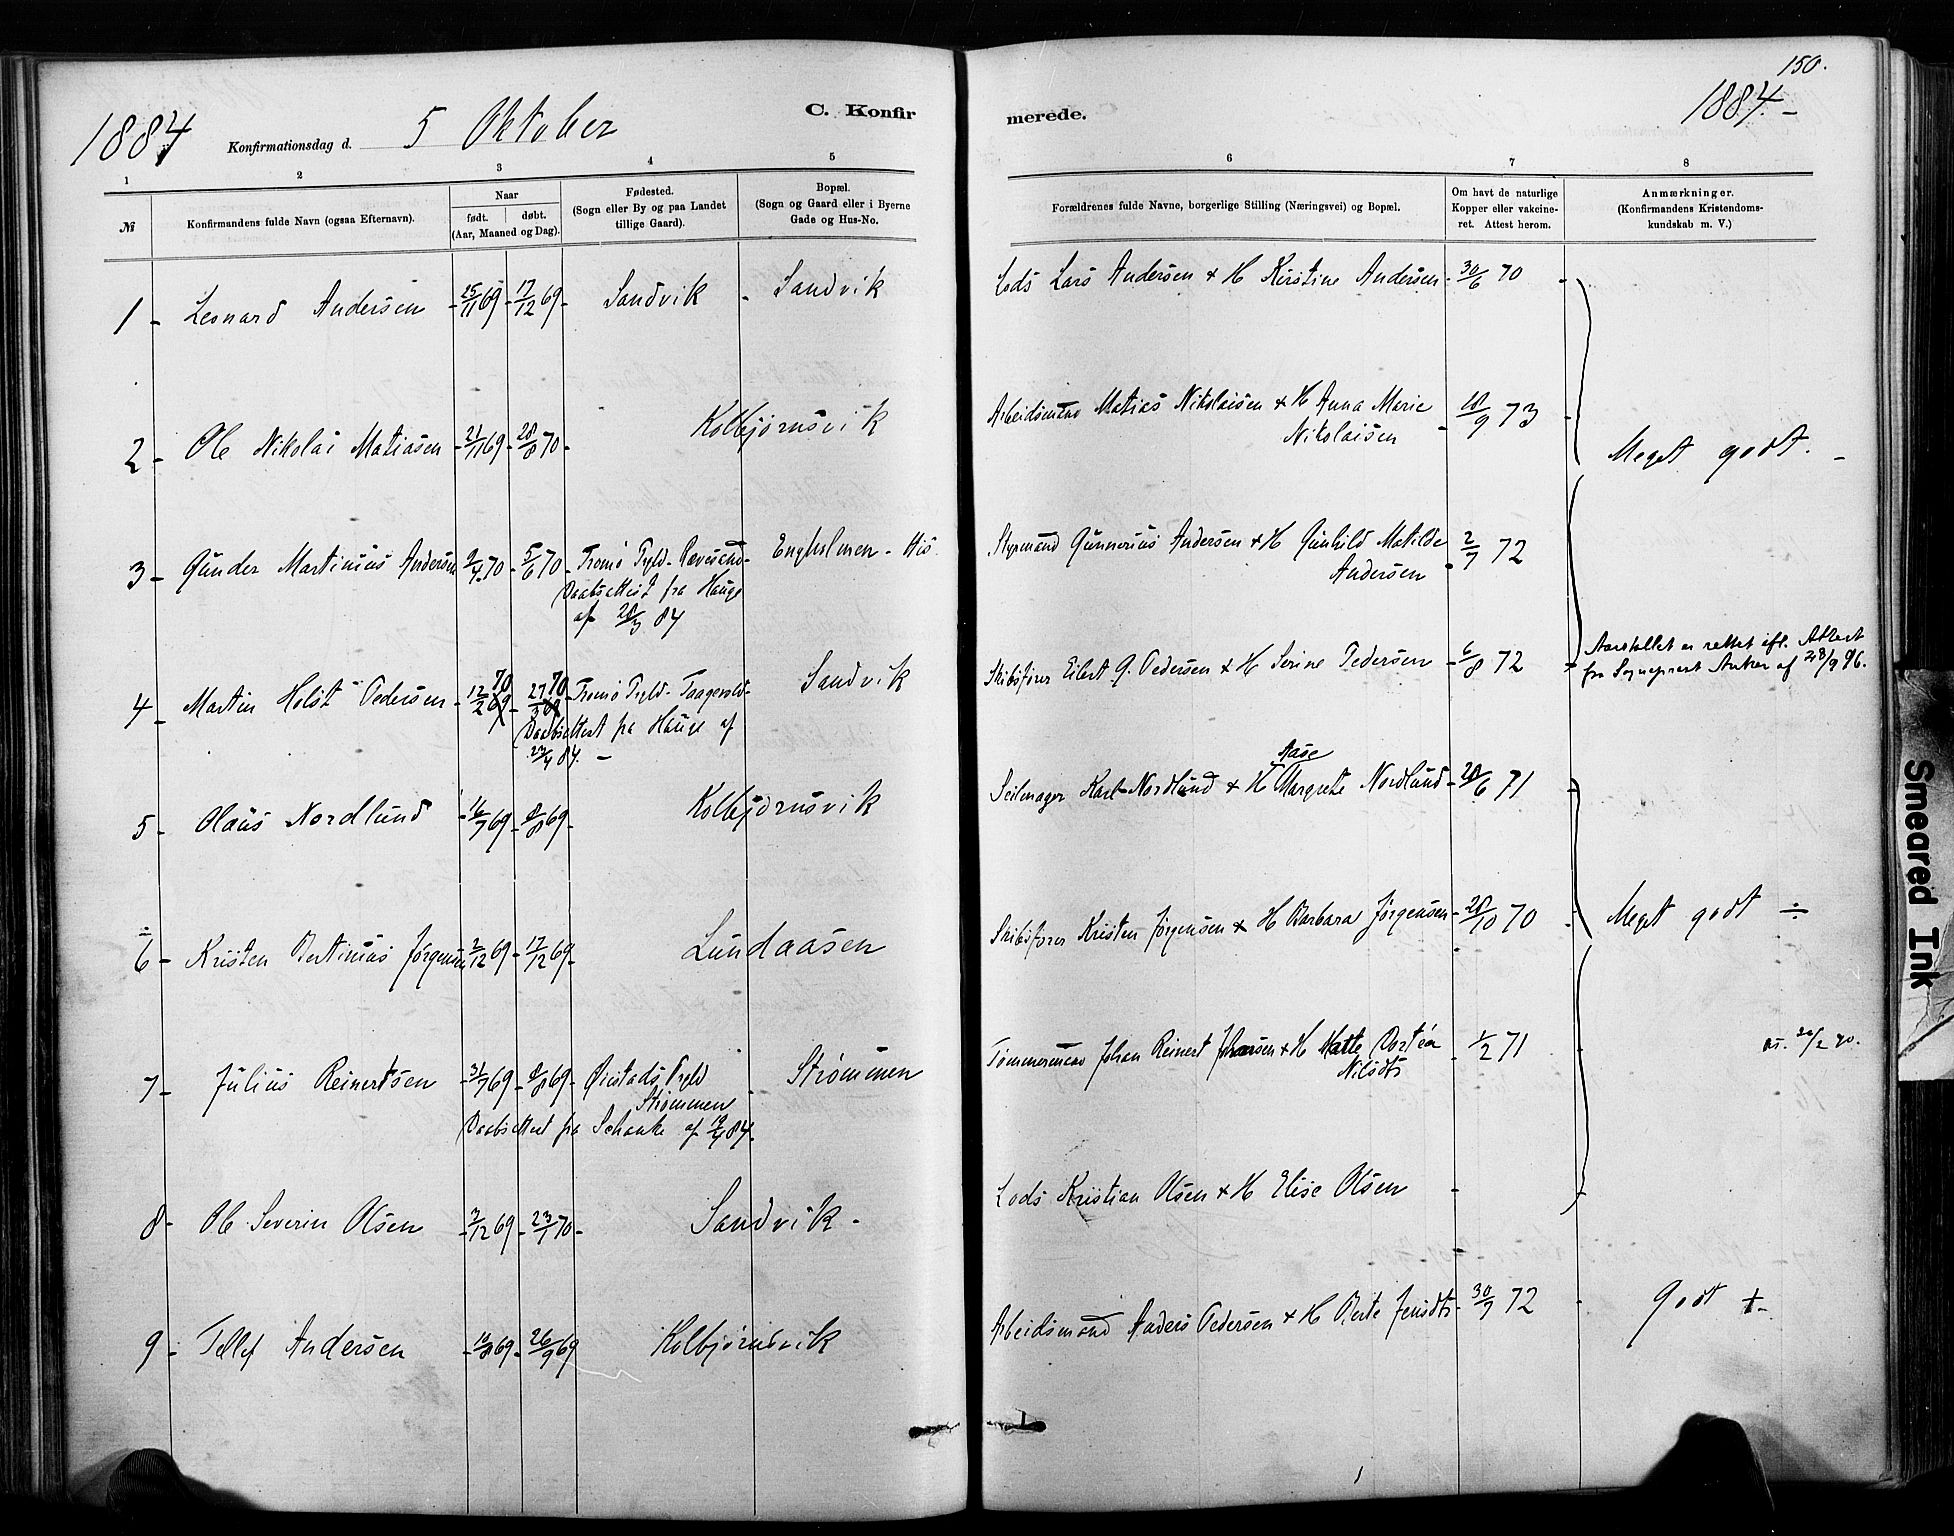 150.
1884
Konfirmationsdag d. 5 Oktober
C. Konfir
merede.
1884.-
1
2
3
4
5
6
7
8
№
Konfirmandens fulde Navn (ogsaa Efternavn).
Naar
født.
døbt.
(Aar, Maaned og Dag).
Fødested.
(Sogn eller By og paa Landet
tillige Gaard).
Bopæl.
(Sogn og Gaard eller i Byerne
Gade og Hus-No.
Forældrenes fulde Navne, borgerlige Stilling (Næringsvei) og Bopæl.
Om havt de naturlige
Kopper eller vakcine-
ret. Attest herom.
Anmærkninger.
(Konfirmandens Kristendoms-
kundskab m. V.)
1 - Leonard Andersen - 25/11 69 - 17/12 69 - Sandvik - Sandvik
Lods Lars Andersen + H Kirstine Andersen - 30/6 70
2 - Ole Nikolai Matiasen - 21/11 69 - 28/8 70 - Kolbjørnsvik
Arbeidsmand Matias Nikolaisen + H Anna Marie
Nikolaisen - 18/9 73
Meget godt. -
3 - Gunder Martinius Andersen 9/4 70 - 5/6 70 - Tromø Pgld.
Engholmen - His
Daabsattest fra Hauge
af 28/3 84
Styrmand Gunnerius Andersen + H Gunhild Matilde
Andersen 2/7 72
4 - Martin Holst Pedersen - 12/2 69 70 - 27/3 69 70 - Tromø Pgld.
Sandvik
Daabsattest fra Hauge af
23/4 84. -
Skibsfører Eilert G. Pedersen + H Serine Pedersen - 6/8 72
Aarstallet er rettet ifl. Attest
fra Sogneprest af 28/9 96.
5 - Olaus Nordlund - 16/7 69 - 8/8 69 - Kolbjørnsvik
Aase
Seilmager Karl Nordlund + H Margrete Nordlund - 28/6 71
÷
6 - Kristen Bertinius Jørgensen 2/12 69 - 17/12 69 - Lundaasen
Skibsfører Kristen Jørgensen + H Barbara Jørgensen - 28/10 70
Meget godt ÷
7 - Julius Reinertsen - 31/7 69 - 8/8 69 - Øiestads Pgld
Strømmen
Strømmen
Daabsattest fra Schanke af 84.
Tømmermand Johan Reinert Johansen + H Matte
Nilsdtr - 1/2 71
20/2 90.
8 - Ole Severin Olsen - 3/12 69 - 23/1 70 - Sandvik -
Lods Kristian Olsen + H Elise Olsen -
9 - Tellef Andersen - 69 - 26/9 69 Kolbjørnsvik
Arbeidsmand Anders Pedersen + H Berte Jensdtr - 30/7 72
Godt +-
Smeared Ink